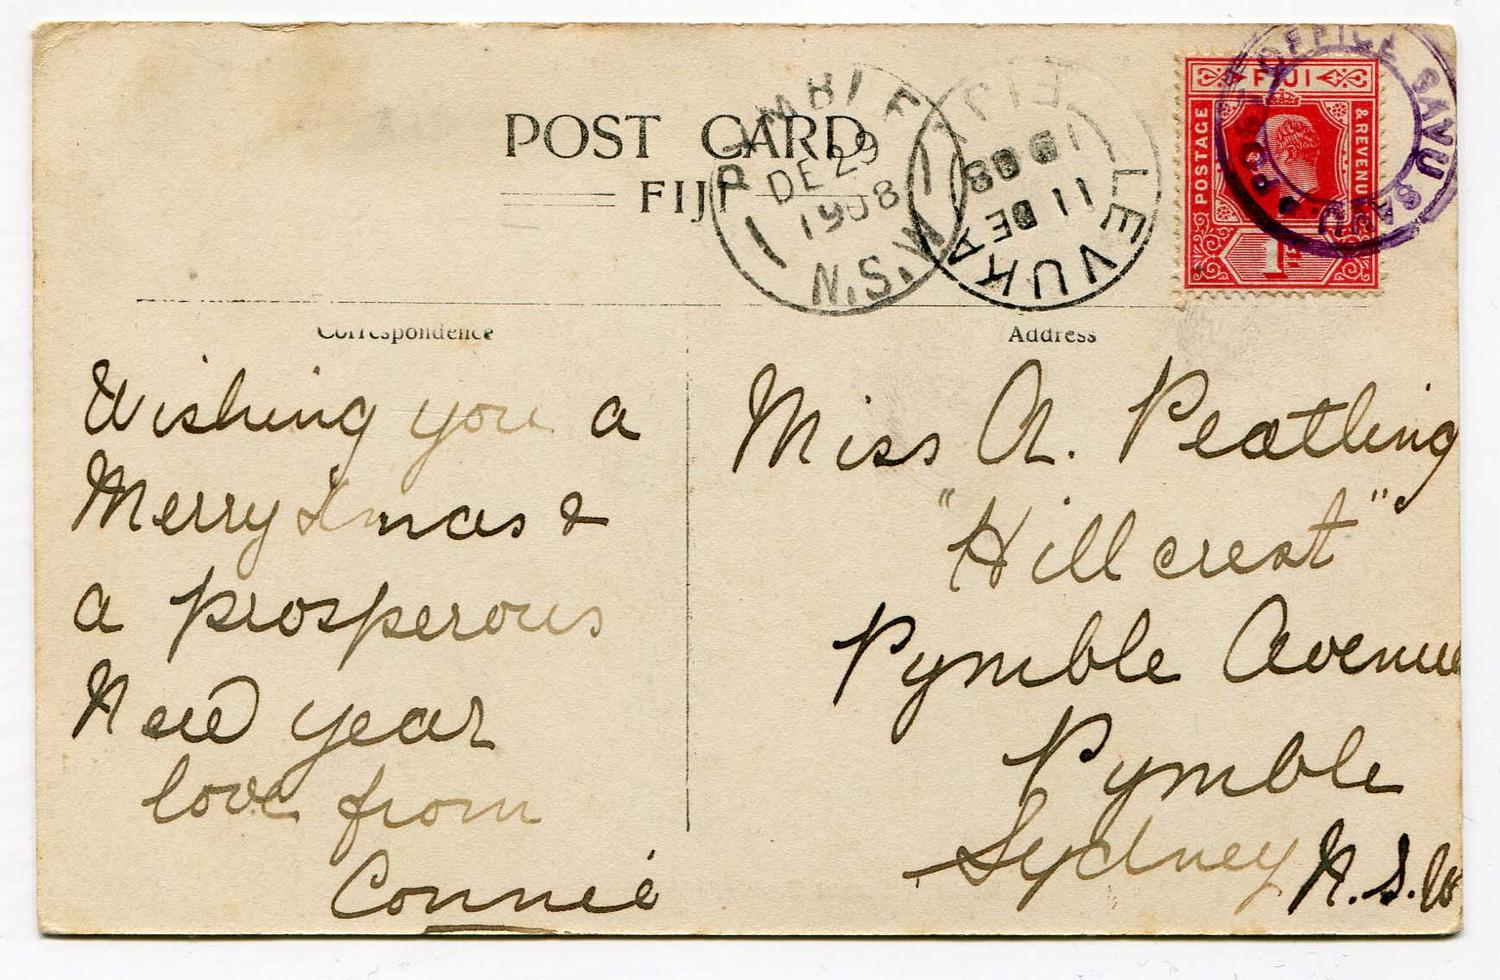 POST CARD
FIJI
PYMBLE
DE 29
1908
N.S.W
FIJI
1908
11 DE
LEVUKA
POST OFFICE SAVU SAVU
FIJI
POSTAGE
& REVENUE
1
Correspondence
Address
Wishing you a
Merry Xmas &
a prosperous
New year
love from
Connie
Miss A. Peatling
"Hillcrest"
Pymble Avenue
Pymble
Sydney N.S.W